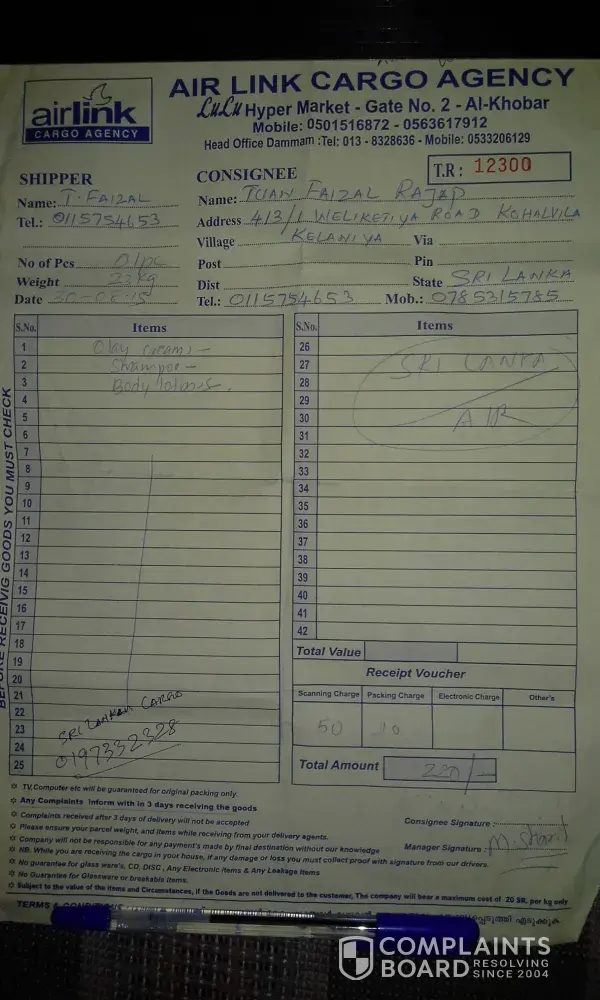 airlink
CARGO AGENCY
AIR LINK CARGO AGENCY
LuLu Hyper Market - Gate No. 2 - Al-Khobar
Mobile: 0501516872 - 0563617912
Head Office Dammam :Tel: 013 - 8328636 - Mobile: 0533206129
T.R : 12300
SHIPPER
Name: T. FAIZAL
Tel.: 0115754653
No of Pcs 01pc
Weight 23kg
Date 30-08-15
CONSIGNEE
Name: TUAN FAIZAL RAJAP
Address 413/1 WELIKETIYA ROAD KOHALVILA
Village KELANIYA Via
Post Pin
Dist State SRI LANKA
Tel.: 0115754653 Mob.: 0785315785
BEFORE RECEIVIG GOODS YOU MUST CHECK
S.No. Items
1 Olay cream -
2 Shampoe -
3 Body
4
5
6
7
8
9
10
11
12
13
14
15
16
17
18
19
20
21
22
23
24
25
SRI LANKAN CARGO
0197332328
S.No. Items
26
27 SRI LANKA
28
29
30 AIR
31
32
33
34
35
36
37
38
39
40
41
42
Total Value
Receipt Voucher
Scanning Charge Packing Charge Electronic Charge Other's
50 10
Total Amount 220/-
TV,Computer etc will be guaranteed for original packing only.
Any Complaints Inform with in 3 days receiving the goods
Complaints received after 3 days of delivery will not be accepted
Please ensure your parcel weight, and items while receiving from your delivery agents.
Company will not be responsible for any payment's made by final destination without our knowledge
NB. While you are receiving the cargo in your house, if any damage or loss you must collect proof with signature from our drivers.
No guarantee for glass ware's, CD, DISC , Any Electronic Items & Any Leakage Items
No Guarantee for Glassware or breakable items.
Subject to the value of the items and Circumstances, if the Goods are not delivered to the customer, The company will bear a maximum cost of 20 SR. per kg only
Consignee Signature :
Manager Signature :
TERMS &
എടുക്കുക
COMPLAINTS
BOARD RESOLVING
SINCE 2004